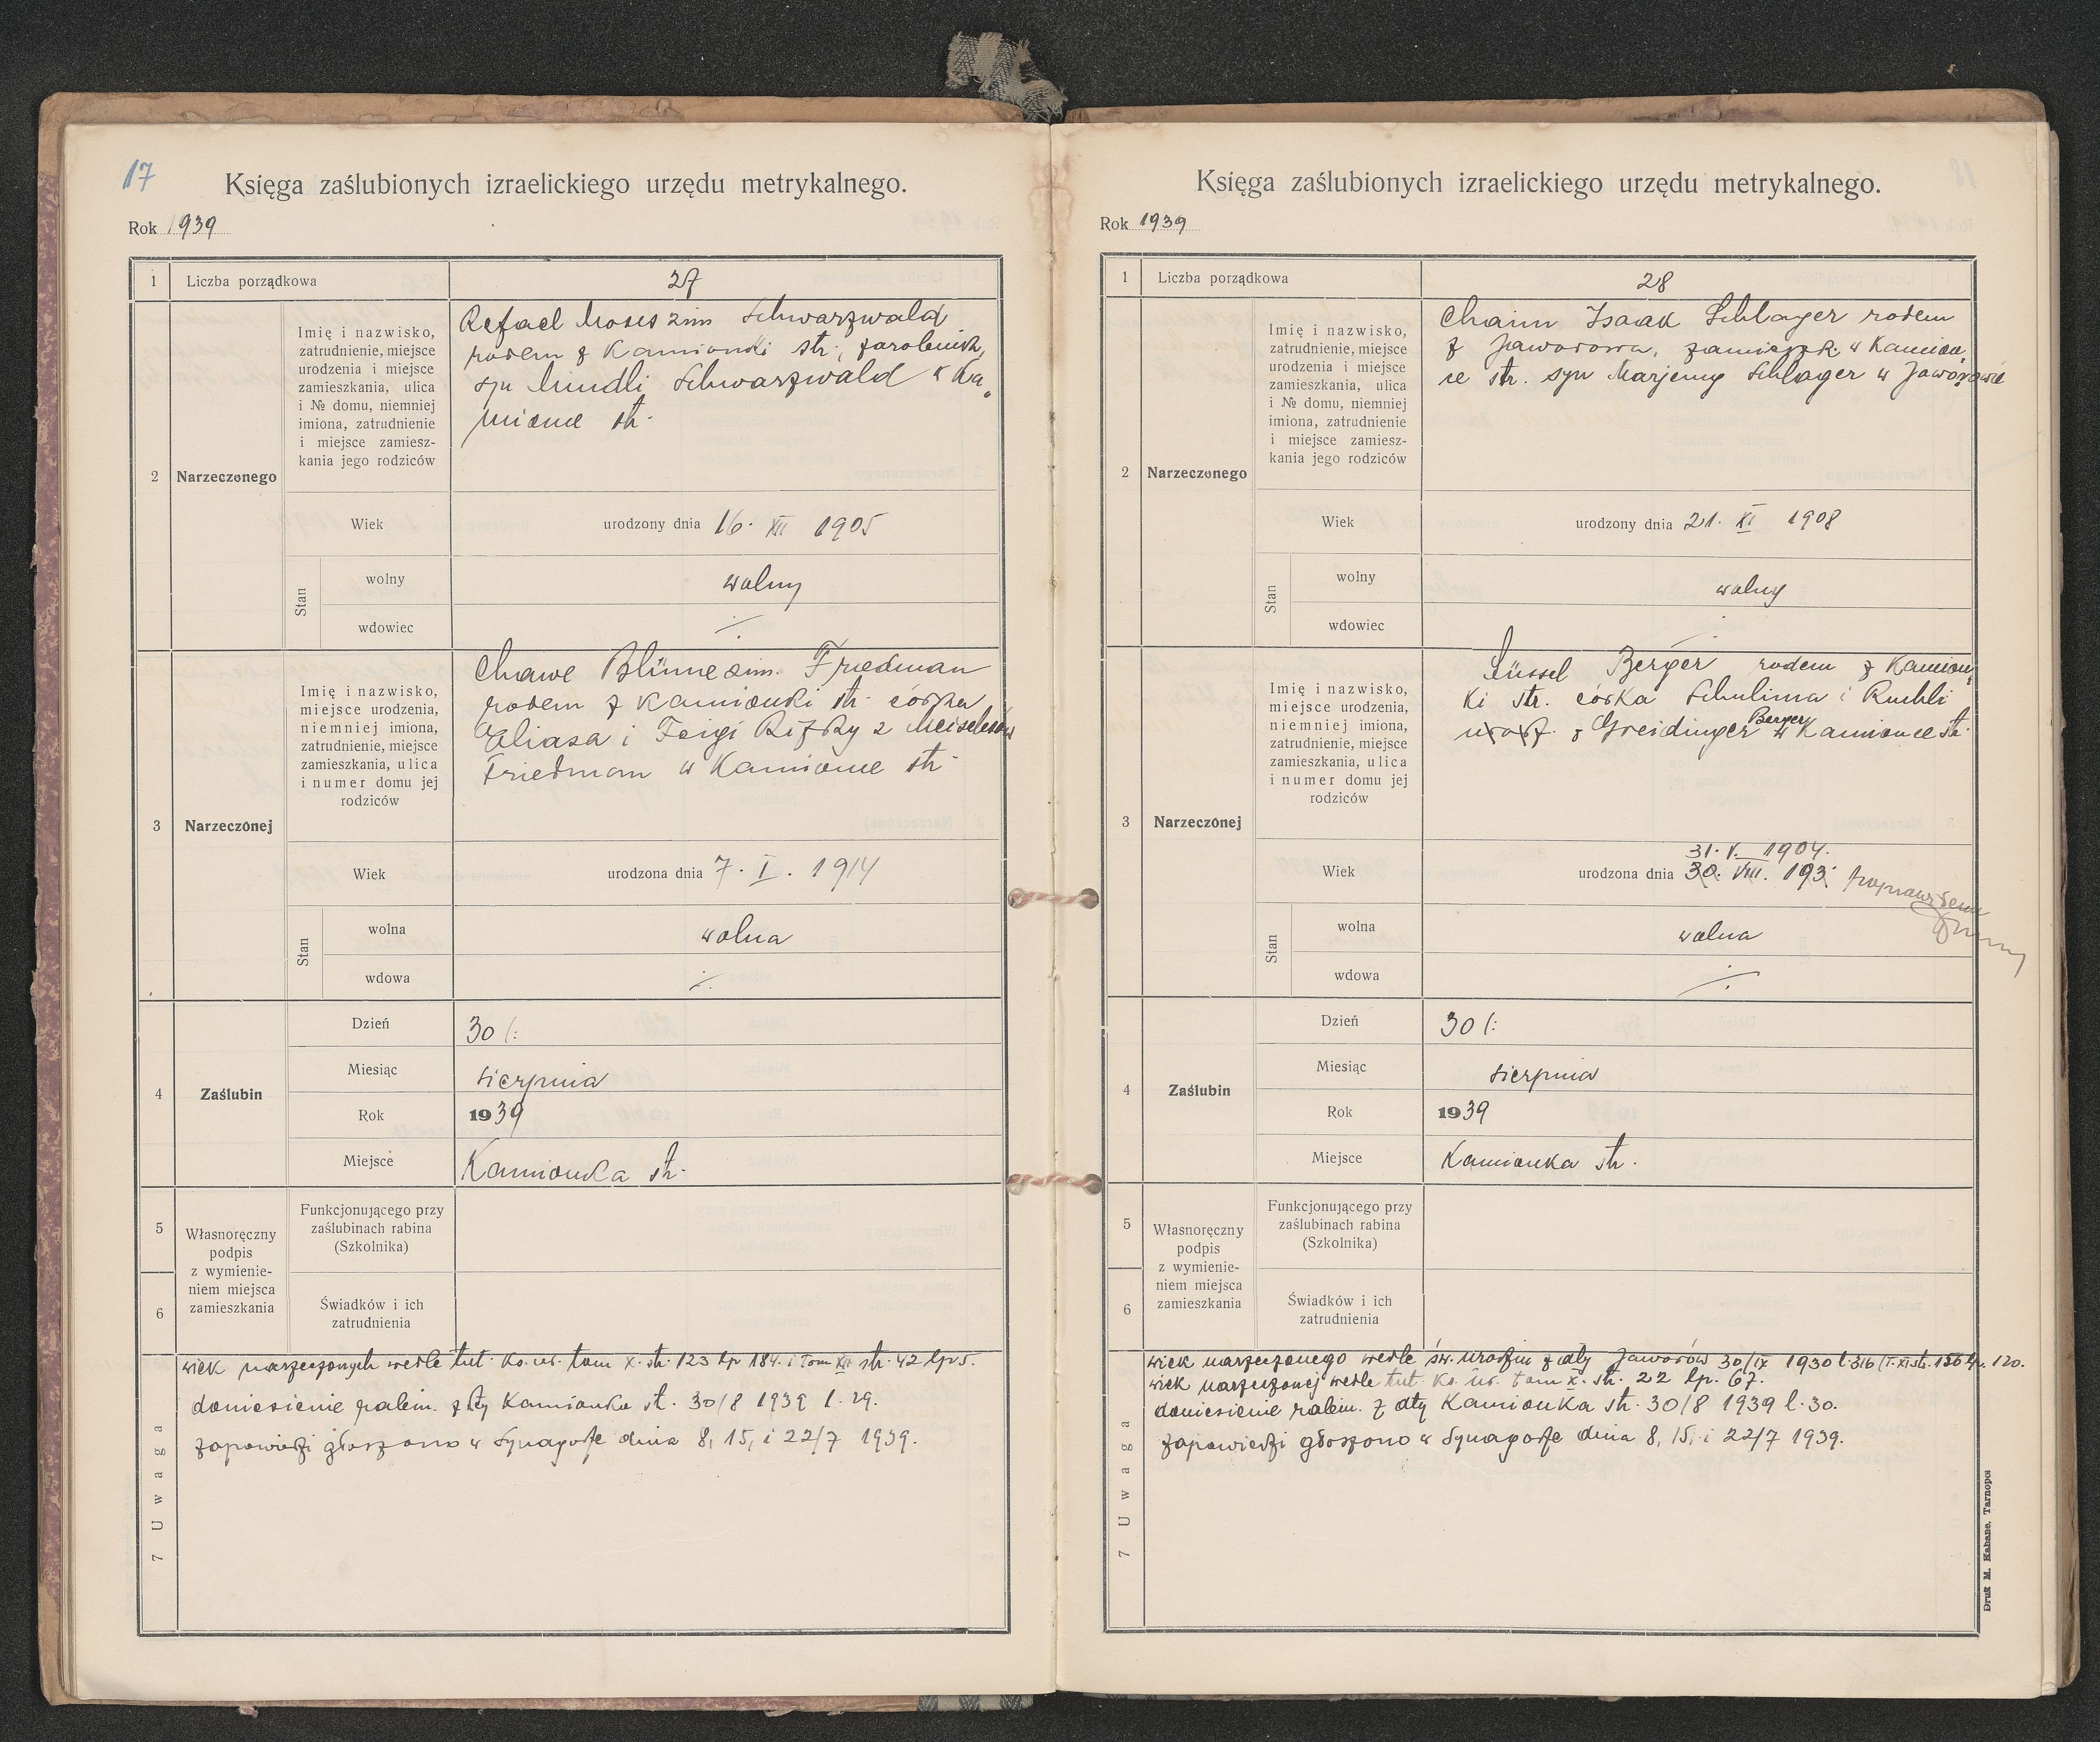 17
Księga zaślubionych izraelickiego urzędu metrykalnego.
Rok 1939
1 Liczba porządkowa 27
2 Narzeczonego
Imię i nazwisko,
zatrudnienie, miejsce
urodzenia i miejsce
zamieszkania, ulica
i № domu, niemniej
imiona, zatrudnienie
i miejsce zamiesz-
kania jego rodziców
Refael Moses 2im Schwarzwald
rodem z Kamionki str., zarobnik,
syn Mindli Schwarzwald w Ka„
mionce str.
Wiek urodzony dnia 16. XII 1905
Stan
wolny wolny
wdowiec ÷
3 Narzeczonej
Imię i nazwisko,
miejsce urodzenia,
niemniej imiona,
zatrudnienie, miejsce
zamieszkania, ulica
i numer domu jej
rodziców
Chawe Blüme 2im. Friedman
rodem z Kamionki str. córka
Eliasa i Feigi Rifky z Meiselesów
Friedman w Kamionce str.
Wiek urodzona dnia 7. I. 1914
Stan
wolna wolna
wdowa ÷
4 Zaślubin
Dzień 30 (:
Miesiąc sierpnia
Rok 1939
Miejsce Kamionka str.
5
6
Własnoręczny
podpis
z wymienie-
niem miejsca
zamieszkania
Funkcjonującego przy
zaślubinach rabina
(Szkolnika)
Świadków i ich
zatrudnienia
7 Uwaga
wiek narzeczonych wedle tut. ks. ur. tom X. str. 123 lp 184. i Tom XII str. 42 lp 5.
doniesienie ralem. z dty Kamionka st. 30/8 1939 l. 29.
zapowiedzi głoszono w Synagodze dnia 8, 15, i 22/7 1939.
Księga zaślubionych izraelickiego urzędu metrykalnego.
Rok 1939
1 Liczba porządkowa 28
2 Narzeczonego
Imię i nazwisko,
zatrudnienie, miejsce
urodzenia i miejsce
zamieszkania, ulica
i № domu, niemniej
imiona, zatrudnienie
i miejsce zamiesz-
kania jego rodziców
Chaim Isaak Schlager rodem
z Jaworowa, zamieszk. w Kamion„
ce str. syn Marjemy Schlager w Jaworowie
Wiek urodzony dnia 21. XI 1908
Stan
wolny wolny
wdowiec
3 Narzeczonej
Imię i nazwisko,
miejsce urodzenia,
niemniej imiona,
zatrudnienie, miejsce
zamieszkania, ulica
i numer domu jej
rodziców
Süssel Berger rodem z Kamion„
ki str. córka Schulima i Ruchli
z Greidinger Berger w Kamionce str.
Wiek urodzona dnia 31. V. 1904.
30. VIII. 193.
Stan
wolna wolna
wdowa ÷
4 Zaślubin
Dzień 30 (:
Miesiąc sierpnia
Rok 1939
Miejsce Kamionka str.
5
6
Własnoręczny
podpis
z wymienie-
niem miejsca
zamieszkania
Funkcjonującego przy
zaślubinach rabina
(Szkolnika)
Świadków i ich
zatrudnienia
7 Uwaga
wiek narzeczonego wedle św. urodzin z dty Jaworów 30/IX 1930 l. 316 (T. XI str. 156 lp. 120.
wiek narzeczonej wedle tut. ks. ur. tom X. str. 22 lp. 67.
doniesienie ralem. z dty Kamionka str. 30/8 1939 l. 30.
zapowiedzi głoszono w Synagodze dnia 8, 15, i 22/7 1939.
Druk M. Kahane, Tarnopol